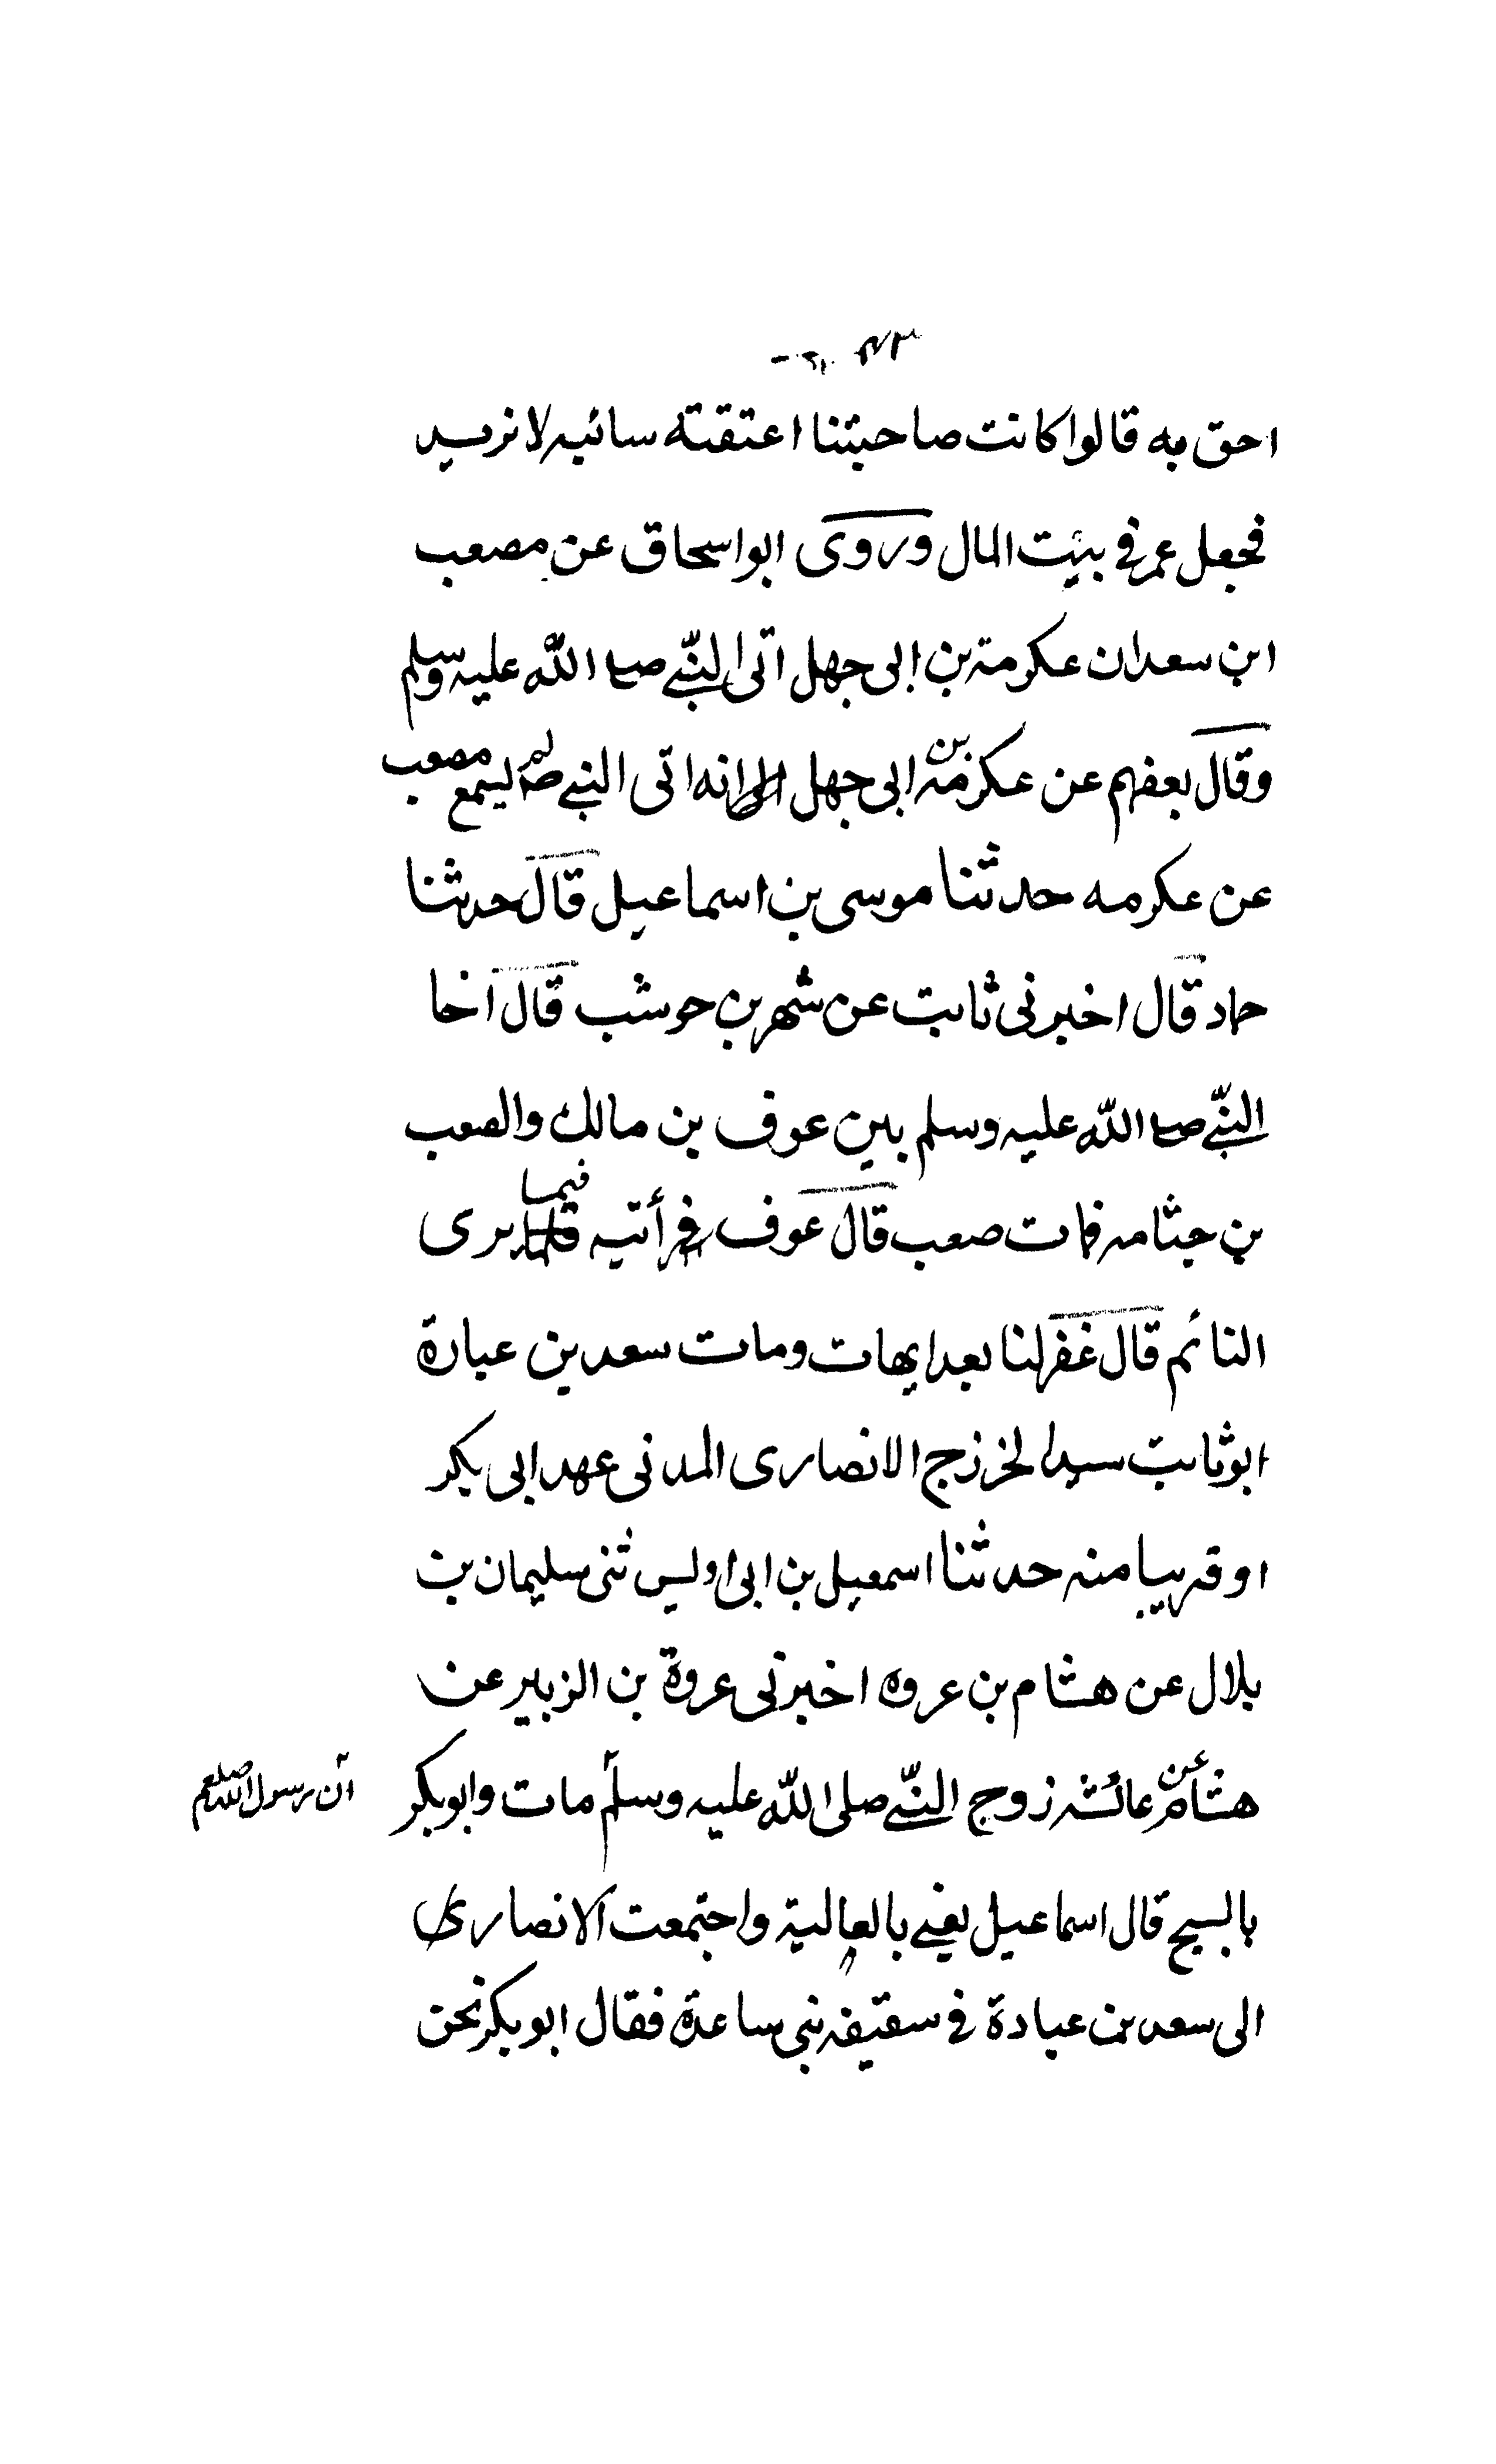 ٤٣
احق به قالوا كانت صاحبتنا اعتقته سائبه لا نريد
فجعل عمر في بيت المال وروى ابو اسحاق عن مصعب
ابن سعد ان عكرمة بن ابى جهل اتى النبي صلى الله عليه وسلم
وقال بعضهم عن عكرمة بن ابى جهل انه اتى النبي صلعم لم يسمع مصعب
عن عكرمه حدثنا موسى بن اسماعيل قال حدثنا
حماد قال اخبرنى ثابت عن شهر بن حوشب قال آخا
النبي صلى الله عليه وسلم بين عوف بن مالك والصعب
بن جثامه فمات صعب قال عوف فرأتيه فيما يرى
النائم قال غفر لنا بعد ايهات ومات سعد بن عبادة
ابو ثابت سيد الخزرج الانصارى المدنى عهد ابى بكر
او قريبا منه حدثنا اسمعيل بن ابى اويس ثنى سليمان بن
بلال عن هشام بن عروه اخبرنى عروة بن الزبير عن
هشام عن عائشه زوج النبي صلى الله عليه وسلم مات وابو بكر
ان رسول الله صلعم
بالسيح قال اسماعيل يعني بالعالية واجتمعت الانصارى
الى سعد بن عبادة في سقيفه بنى ساعدة فقال ابو بكر نحن